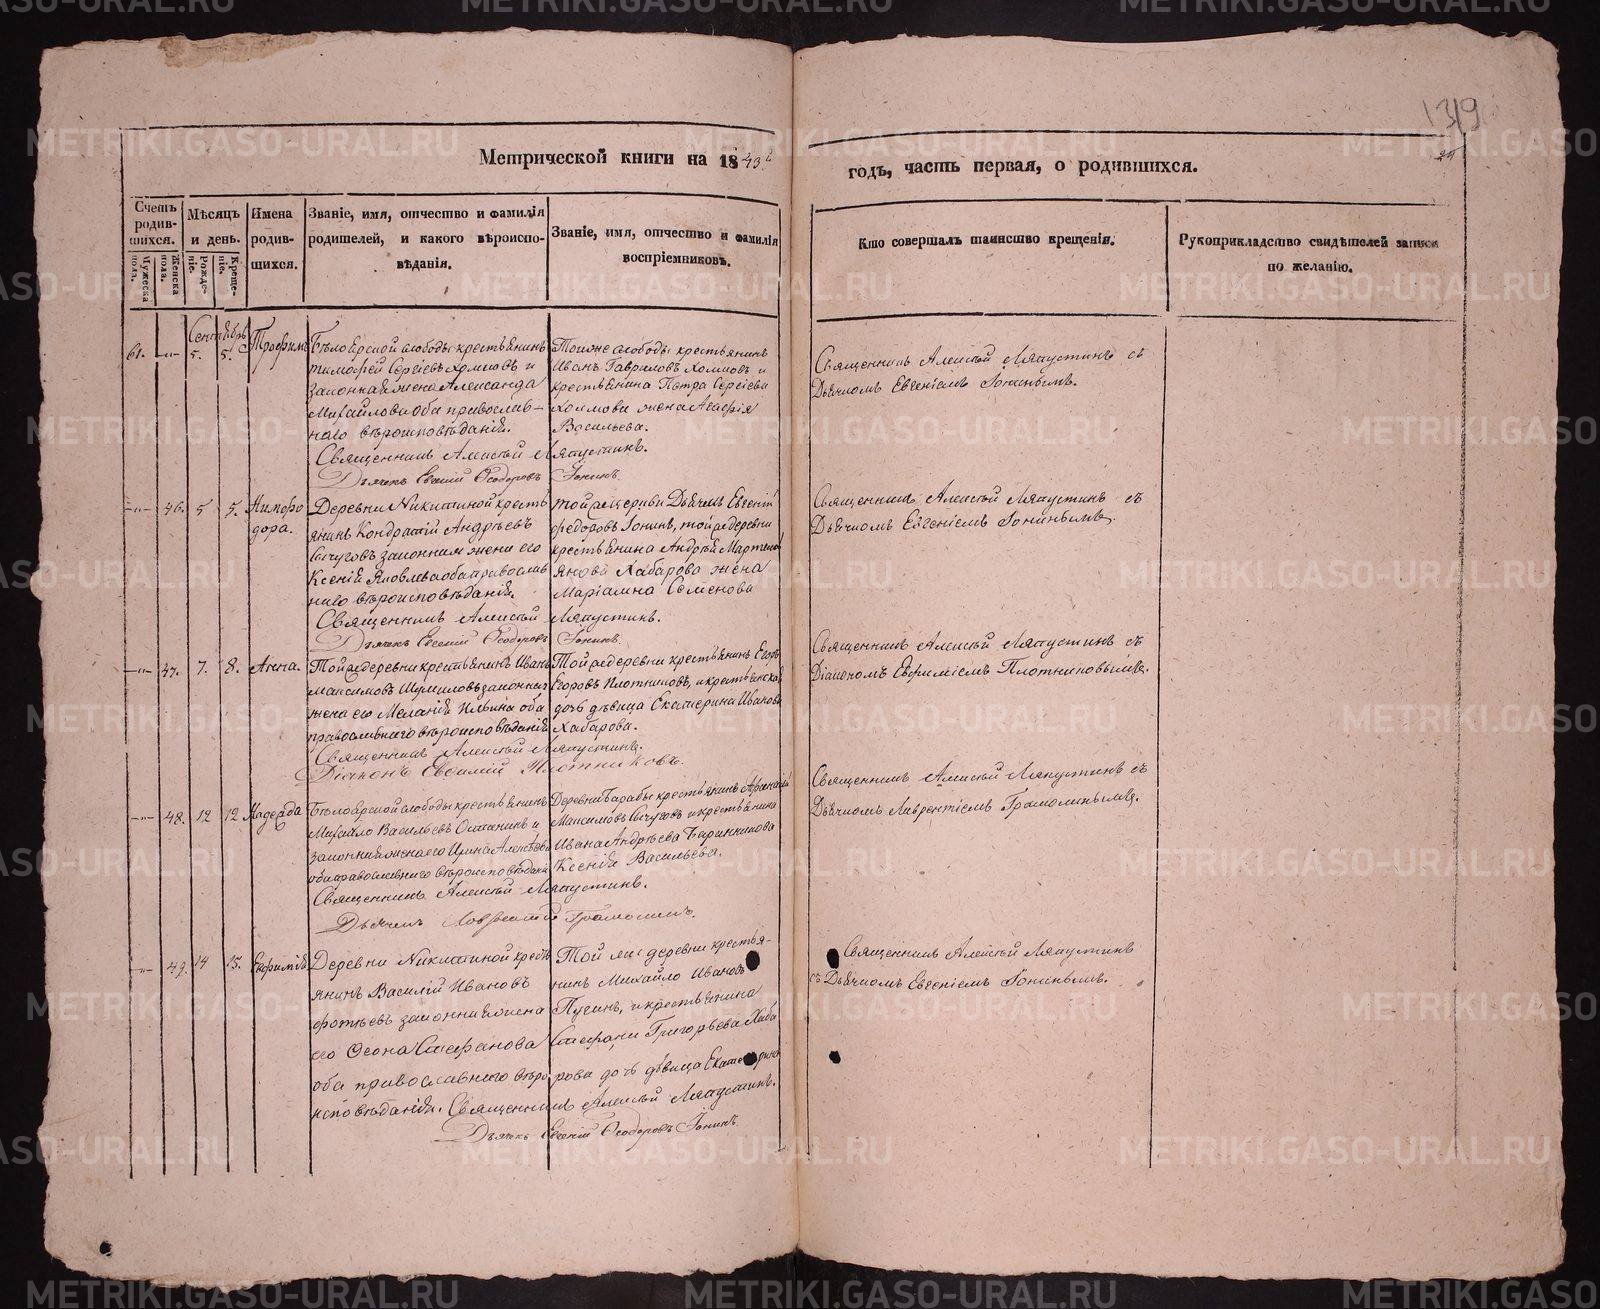 139
24
Метрической книги на 1843й
годъ, часть первая, о родившихся.
Счетъ родив-шихся.
Мужеска пола.
Женска пола.
Мѣсяцъ и день.
Рожде-нія.
Креще-нія.
Имена родив-шихся.
Званіе, имя, отчество и фамилія
родителей, и какого вѣроиспо-
вѣданія.
Званіе, имя, отчество и фамилія
воспріемниковъ.
Кто совершалъ таинство крещенія.
Рукоприкладство свидѣтелей записи
по желанію.
Сентябрь
61. —„— 5. 5. Трофимъ
Бѣлоярской слободы крестьянинъ
Тимофей Сергѣевъ Холмовъ и
законная жена Александра
Михайлова оба православ-
наго вѣроисповѣданія.
Священникъ Алексѣй Ляпустинъ.
Дьячекъ Евгеній Ѳеодоровъ Іонинъ.
Тойже слободы крестьянинъ
Иванъ Гавриловъ Холмовъ и
крестьянина Петра Сергѣева
Холмова жена Агафія
Васильева.
Священникъ Алексѣй Ляпустинъ съ
Дьячкомъ Евгеніемъ Іонинымъ.
—„— 46. 5 5. Нимфо
дора.
Деревни Никитиной кресть
янинъ Кондратій Андрѣевъ
Сычуговъ законная жена его
Ксенія Яковлева оба православ
наго вѣроисповѣданія.
Священникъ Алексѣй Ляпустинъ.
Дьячекъ Евгеній Ѳеодоровъ Іонинъ.
той же церкви Дьячекъ Евгеній
Федоровъ Іонинъ, той же деревни
крестьянина Андрѣя Мартемь
янова Хабарова жена
Маріамна Семенова
Священникъ Алексѣй Ляпустинъ съ
Дьячкомъ Евгеніемъ Іонинымъ.
—„— 47. 7. 8. Анна.
Той же деревни крестьянинъ Иванъ
Максимовъ Шумиловъ законная
жена его Меланія Ильина оба
православнаго вѣроисповѣданія
Священникъ Алексѣй Ляпустинъ.
Діаконъ Евѳимій Плотниковъ.
Той же деревни крестьянинъ Егоръ
Егоровъ Плотниковъ, и крестьянская
дочь дѣвица Екатерина Иванова
Хабарова.
Священникъ Алексѣй Ляпустинъ съ
Діакономъ Евфиміемъ Плотниковымъ.
—„— 48. 12 12 Надежда
Бѣлоярской слободы крестьянинъ
Михайло Васильевъ Останинъ и
законная жена его Ирина Алексѣева
оба православнаго вѣроисповѣданія
Священникъ Алексѣй Ляпустинъ.
Дьячекъ Лаврентій Грамолинъ.
Деревни Барабы крестьянинъ Афанасій
Максимовъ Сычуговъ и крестьянина
Ивана Андрѣева Баранникова
Ксенія Васильева.
Священникъ Алексѣй Ляпустинъ съ
Дьячкомъ Лаврентіемъ Грамолинымъ.
—„— 49. 14 15. Евфимія
Деревни Никитиной кресть
янинъ Василій Ивановъ
Фотѣевъ законная жена
его Ѳеона Стефанова
оба православнаго вѣро
исповѣданія. Священникъ Алексѣй Ляпустинъ.
Дьячекъ Евгеній Ѳеодоровъ Іонинъ.
Той же деревни крестья-
нинъ Михайло Ивановъ
Пугинъ, и крестьянина
Стефана Григорьева Хаба
рова дочь дѣвица Екатерина
Священникъ Алексѣй Ляпустинъ
съ Дьячкомъ Евгеніемъ Іонинымъ.
METRIKI.GASO-URAL.RU